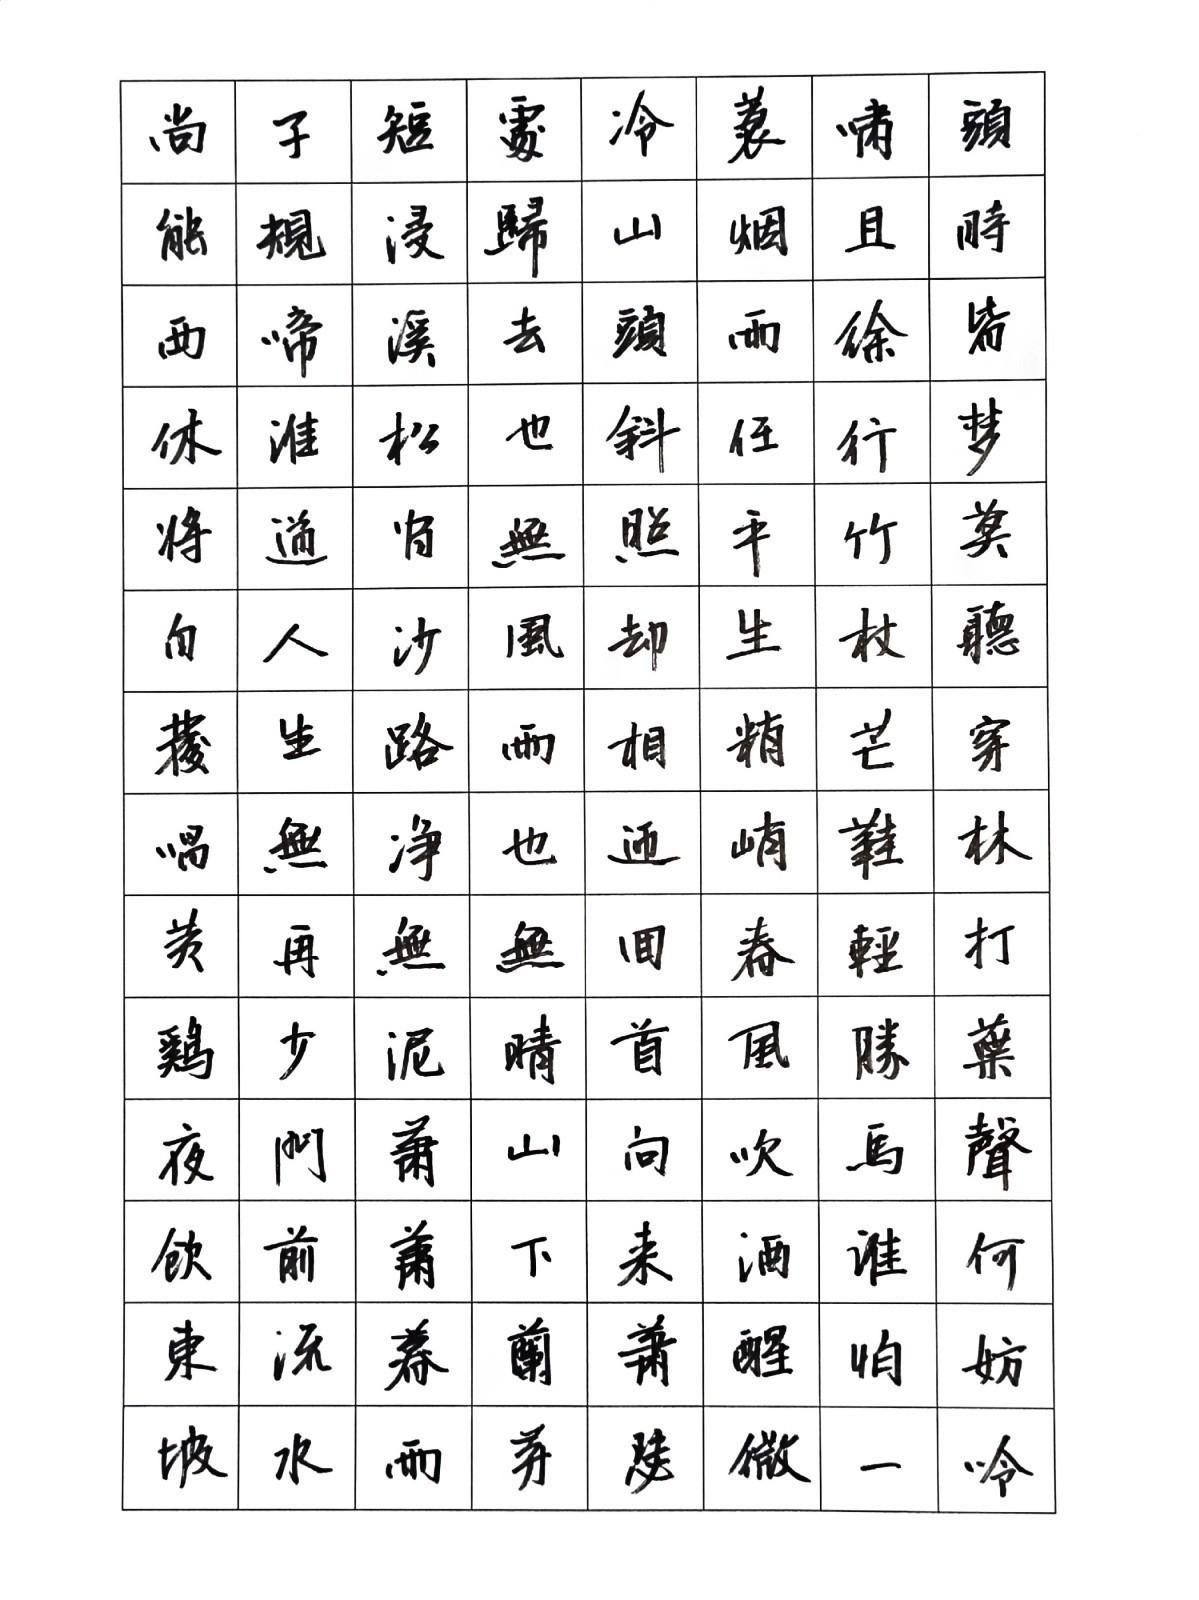 頭時皆梦莫聽穿林打葉聲何妨吟
嘯且徐行竹杖芒鞋輕勝馬谁怕一
蓑烟雨任平生精峭春風吹酒醒微
冷山頭斜照却相迎回首向来蕭瑟
處歸去也無風雨也無晴山下蘭芽
短浸溪松肖沙路净無泥蕭蕭暮雨
子規啼谁道人生無再少門前流水
尚能西休将白髮唱黄鷄夜飲東坡